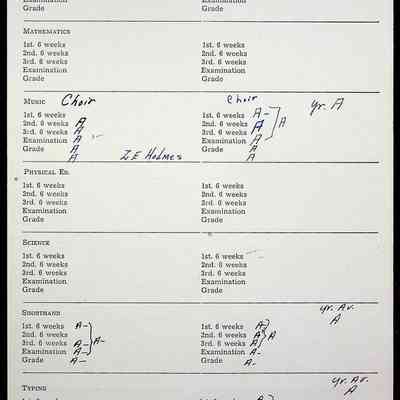 Examination Examination
Grade Grade
MATHEMATICS
1st. 6 weeks 1st. 6 weeks
2nd. 6 weeks 2nd. 6 weeks
3rd. 6 weeks 3rd. 6 weeks
Examination Examination
Grade Grade
MUSIC Choir Choir Yr. A
1st. 6 weeks 1st. 6 weeks A-
2nd. 6 weeks A 2nd. 6 weeks A A
3rd. 6 weeks A 3rd. 6 weeks A
Examination A Examination A
Grade A Grade A
A ZE Holmes A
PHYSICAL ED.
1st. 6 weeks 1st. 6 weeks
2nd. 6 weeks 2nd. 6 weeks
3rd. 6 weeks 3rd. 6 weeks
Examination Examination
Grade Grade
SCIENCE
1st. 6 weeks 1st. 6 weeks
2nd. 6 weeks 2nd. 6 weeks
3rd. 6 weeks 3rd. 6 weeks
Examination Examination
Grade Grade
SHORTHAND Yr. Av.
A
1st. 6 weeks A- 1st. 6 weeks A
2nd. 6 weeks 2nd. 6 weeks A A
3rd. 6 weeks A- A- 3rd. 6 weeks A
Examination A- Examination A-
Grade A- Grade A-
TYPING Yr. Av.
A